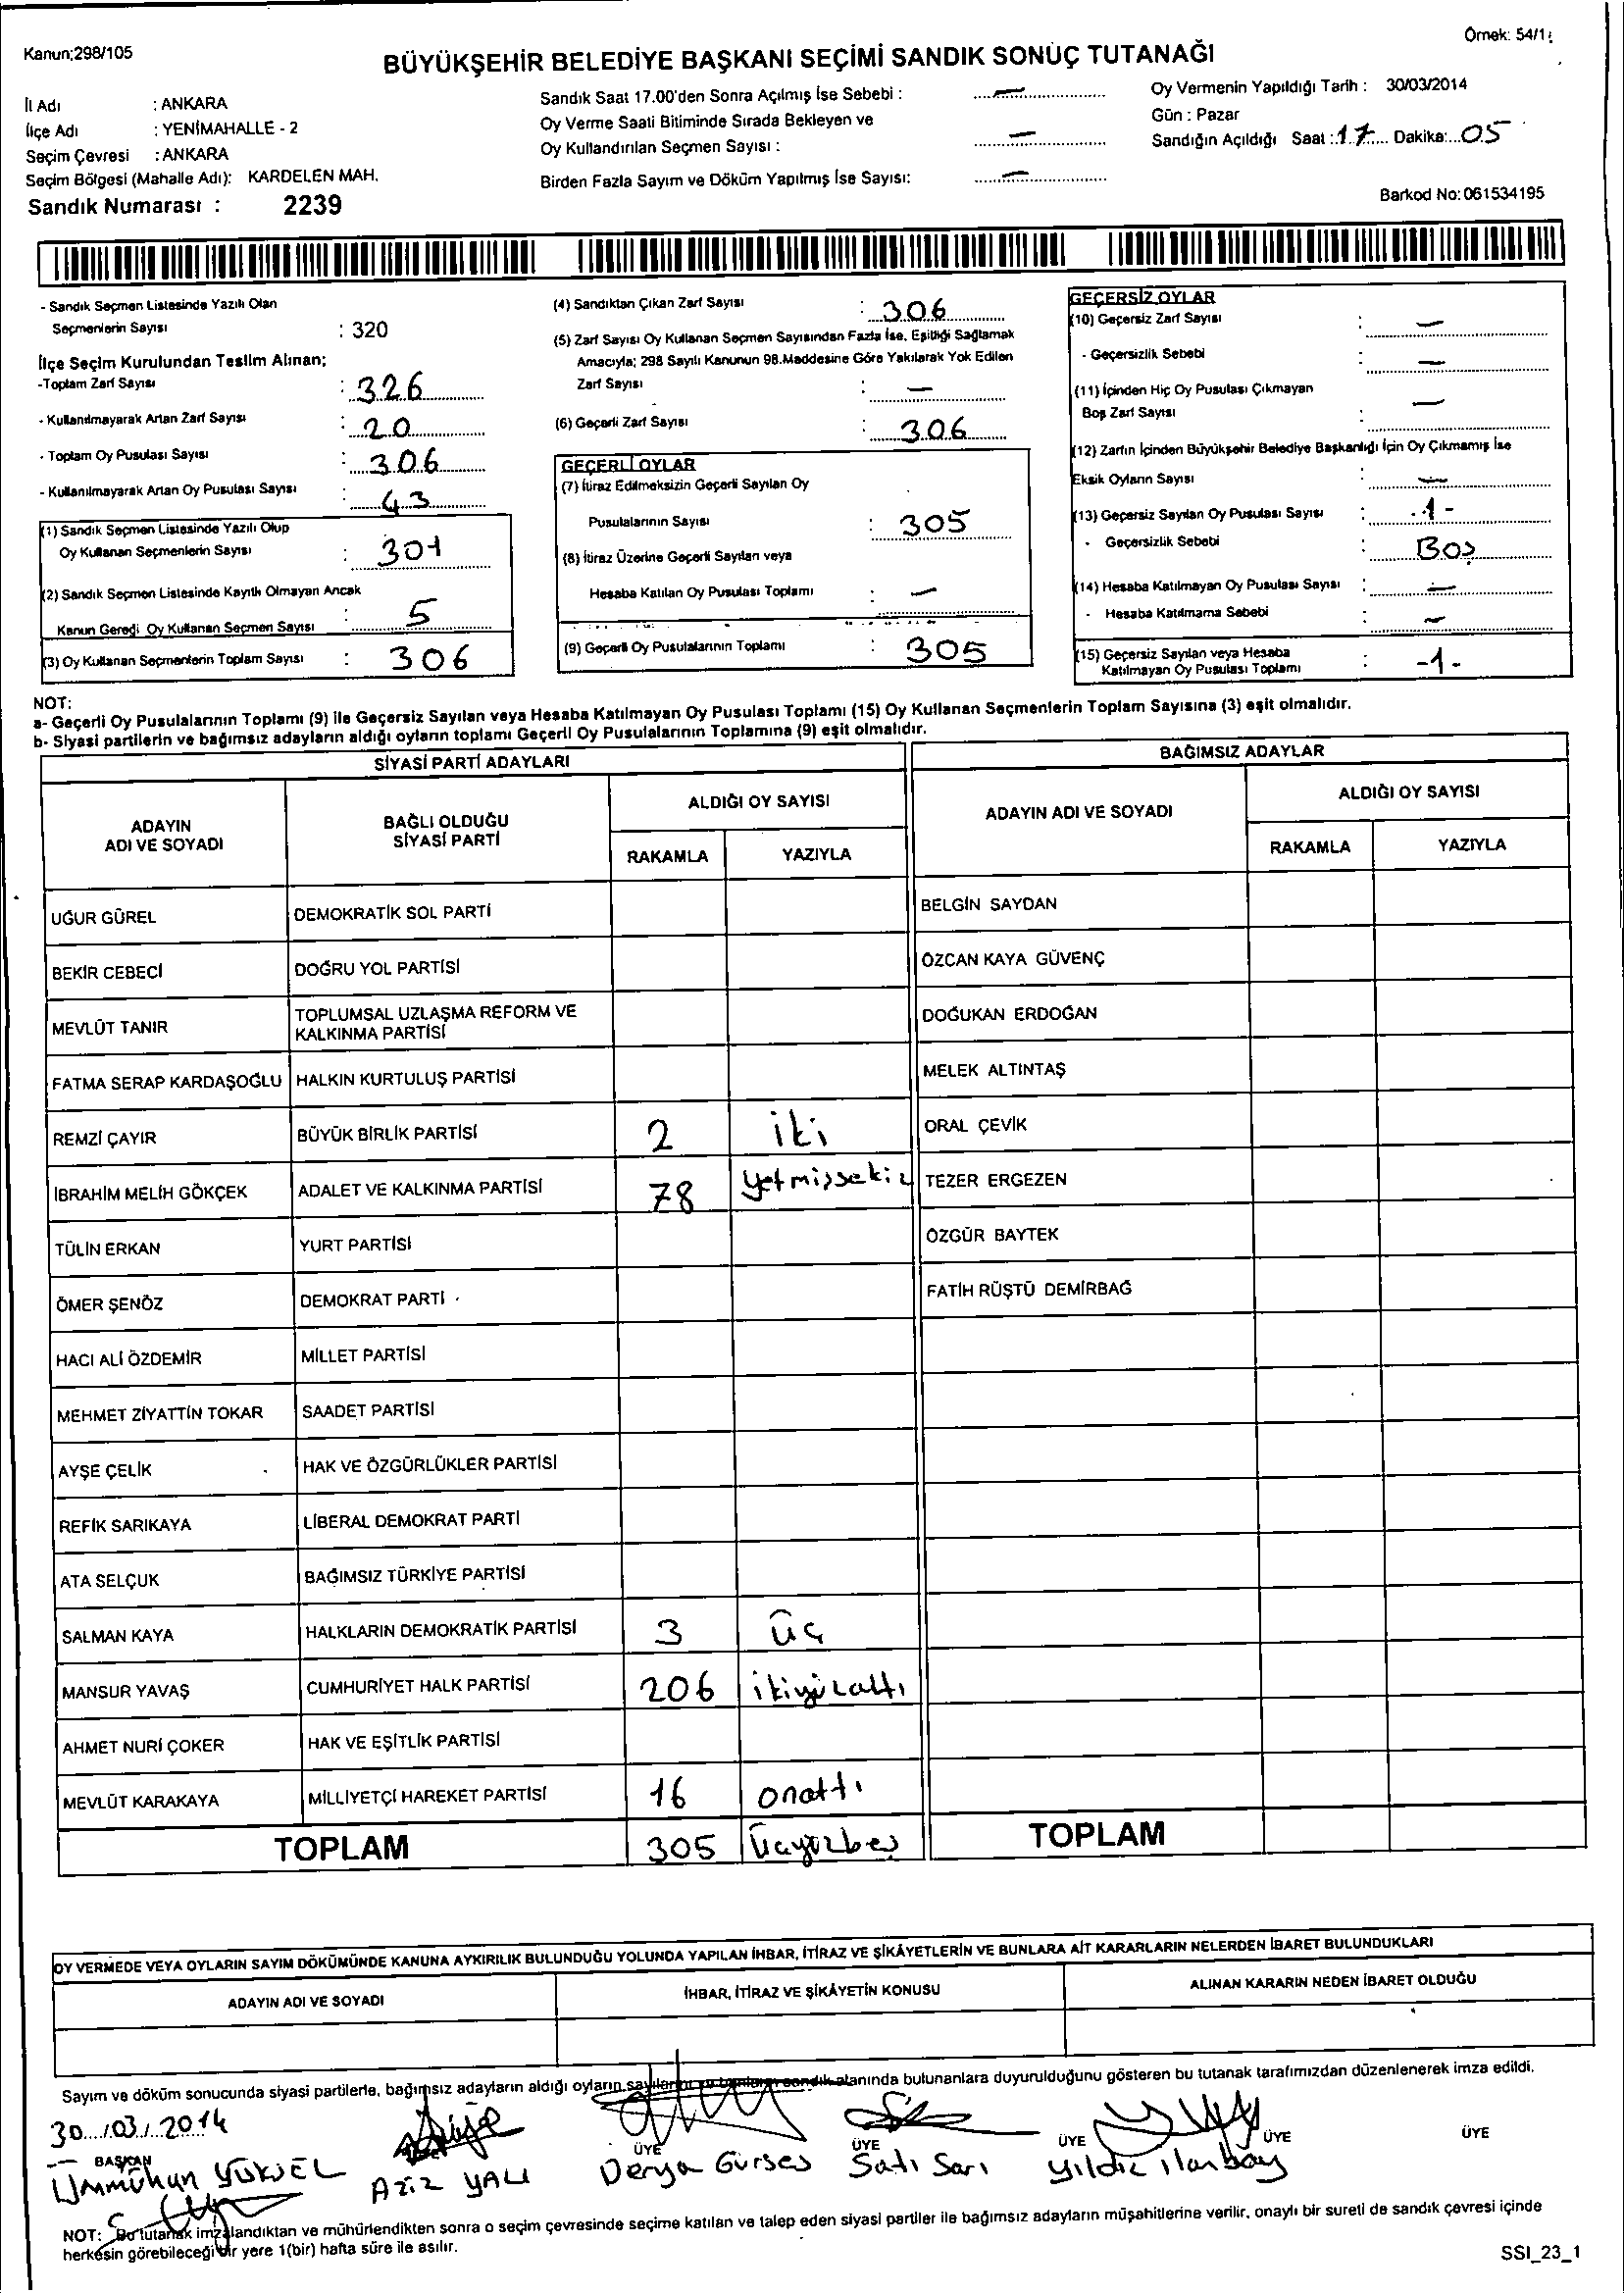 Kanun;298/105
Örnek: 54/1
BÜYÜKŞEHİR BELEDİYE BAŞKANI SEÇİMİ SANDIK SONUÇ TUTANAĞI
İl Adı : ANKARA
İlçe Adı : YENİMAHALLE - 2
Seçim Çevresi : ANKARA
Seçim Bölgesi (Mahalle Adı): KARDELEN MAH.
Sandık Numarası : 2239
Sandık Saat 17.00'den Sonra Açılmış İse Sebebi : —
Oy Verme Saati Bitiminde Sırada Bekleyen ve
Oy Kullandırılan Seçmen Sayısı : —
Birden Fazla Sayım ve Döküm Yapılmış İse Sayısı: —
Oy Vermenin Yapıldığı Tarih : 30/03/2014
Gün : Pazar
Sandığın Açıldığı Saat : 17 Dakika: 05
Barkod No: 061534195
- Sandık Seçmen Listesinde Yazılı Olan
Seçmenlerin Sayısı : 320
İlçe Seçim Kurulundan Teslim Alınan;
-Toplam Zarf Sayısı : 326
- Kullanılmayarak Artan Zarf Sayısı : 20
- Toplam Oy Pusulası Sayısı : 306
- Kullanılmayarak Artan Oy Pusulası Sayısı : 43
(1) Sandık Seçmen Listesinde Yazılı Olup
Oy Kullanan Seçmenlerin Sayısı : 301
(2) Sandık Seçmen Listesinde Kayıtlı Olmayan Ancak
Kanun Gereği Oy Kullanan Seçmen Sayısı : 5
(3) Oy Kullanan Seçmenlerin Toplam Sayısı : 306
(4) Sandıktan Çıkan Zarf Sayısı : 306
(5) Zarf Sayısı Oy Kullanan Seçmen Sayısından Fazla İse, Eşitliği Sağlamak
Amacıyla; 298 Sayılı Kanunun 98.Maddesine Göre Yakılarak Yok Edilen
Zarf Sayısı : —
(6) Geçerli Zarf Sayısı : 306
GEÇERLİ OYLAR
(7) İtiraz Edilmeksizin Geçerli Sayılan Oy
Pusulalarının Sayısı : 305
(8) İtiraz Üzerine Geçerli Sayılan veya
Hesaba Katılan Oy Pusulası Toplamı : —
(9) Geçerli Oy Pusulalarının Toplamı : 305
GEÇERSİZ OYLAR
(10) Geçersiz Zarf Sayısı : —
- Geçersizlik Sebebi : —
(11) İçinden Hiç Oy Pusulası Çıkmayan
Boş Zarf Sayısı : —
(12) Zarfın İçinden Büyükşehir Belediye Başkanlığı İçin Oy Çıkmamış İse
Eksik Oyların Sayısı : —
(13) Geçersiz Sayılan Oy Pusulası Sayısı : -1-
- Geçersizlik Sebebi : Boş
(14) Hesaba Katılmayan Oy Pusulası Sayısı : —
- Hesaba Katılmama Sebebi : —
(15) Geçersiz Sayılan veya Hesaba
Katılmayan Oy Pusulası Toplamı : -1-
NOT:
a- Geçerli Oy Pusulalarının Toplamı (9) ile Geçersiz Sayılan veya Hesaba Katılmayan Oy Pusulası Toplamı (15) Oy Kullanan Seçmenlerin Toplam Sayısına (3) eşit olmalıdır.
b- Siyasi partilerin ve bağımsız adayların aldığı oyların toplamı Geçerli Oy Pusulalarının Toplamına (9) eşit olmalıdır.
SİYASİ PARTİ ADAYLARI
BAĞIMSIZ ADAYLAR
ADAYIN
ADI VE SOYADI
BAĞLI OLDUĞU
SİYASİ PARTİ
ALDIĞI OY SAYISI
RAKAMLA YAZIYLA
ADAYIN ADI VE SOYADI
ALDIĞI OY SAYISI
RAKAMLA YAZIYLA
UĞUR GÜREL DEMOKRATİK SOL PARTİ BELGİN SAYDAN
BEKİR CEBECİ DOĞRU YOL PARTİSİ ÖZCAN KAYA GÜVENÇ
MEVLÜT TANIR TOPLUMSAL UZLAŞMA REFORM VE
KALKINMA PARTİSİ DOĞUKAN ERDOĞAN
FATMA SERAP KARDAŞOĞLU HALKIN KURTULUŞ PARTİSİ MELEK ALTINTAŞ
REMZİ ÇAYIR BÜYÜK BİRLİK PARTİSİ 2 iki ORAL ÇEVİK
İBRAHİM MELİH GÖKÇEK ADALET VE KALKINMA PARTİSİ 78 yetmişsekiz TEZER ERGEZEN
TÜLİN ERKAN YURT PARTİSİ ÖZGÜR BAYTEK
ÖMER ŞENÖZ DEMOKRAT PARTİ FATİH RÜŞTÜ DEMİRBAĞ
HACI ALİ ÖZDEMİR MİLLET PARTİSİ
MEHMET ZİYATTİN TOKAR SAADET PARTİSİ
AYŞE ÇELİK HAK VE ÖZGÜRLÜKLER PARTİSİ
REFİK SARIKAYA LİBERAL DEMOKRAT PARTİ
ATA SELÇUK BAĞIMSIZ TÜRKİYE PARTİSİ
SALMAN KAYA HALKLARIN DEMOKRATİK PARTİSİ 3 üç
MANSUR YAVAŞ CUMHURİYET HALK PARTİSİ 206 ikiyüzaltı
AHMET NURİ ÇOKER HAK VE EŞİTLİK PARTİSİ
MEVLÜT KARAKAYA MİLLİYETÇİ HAREKET PARTİSİ 16 onaltı
TOPLAM 305 Üçyüzbeş TOPLAM
OY VERMEDE VEYA OYLARIN SAYIM DÖKÜMÜNDE KANUNA AYKIRILIK BULUNDUĞU YOLUNDA YAPILAN İHBAR, İTİRAZ VE ŞİKÂYETLERİN VE BUNLARA AİT KARARLARIN NELERDEN İBARET BULUNDUKLARI
ADAYIN ADI VE SOYADI İHBAR, İTİRAZ VE ŞİKÂYETİN KONUSU ALINAN KARARIN NEDEN İBARET OLDUĞU
Sayım ve döküm sonucunda siyasi partilerle, bağımsız adayların aldığı oyların sayılarını ve bunların sandık alanında bulunanlara duyurulduğunu gösteren bu tutanak tarafımızdan düzenlenerek imza edildi.
30/03/2014
BAŞKAN ÜYE ÜYE ÜYE ÜYE ÜYE
Ümmühan YÜKSEL Aziz YALI Derya Gürses Satı Sarı Yıldız ilanbay
NOT: Bu tutanak imzalandıktan ve mühürlendikten sonra o seçim çevresinde seçime katılan ve talep eden siyasi partiler ile bağımsız adayların müşahitlerine verilir, onaylı bir sureti de sandık çevresi içinde
herkesin görebileceği bir yere 1(bir) hafta süre ile asılır.
SSI_23_1